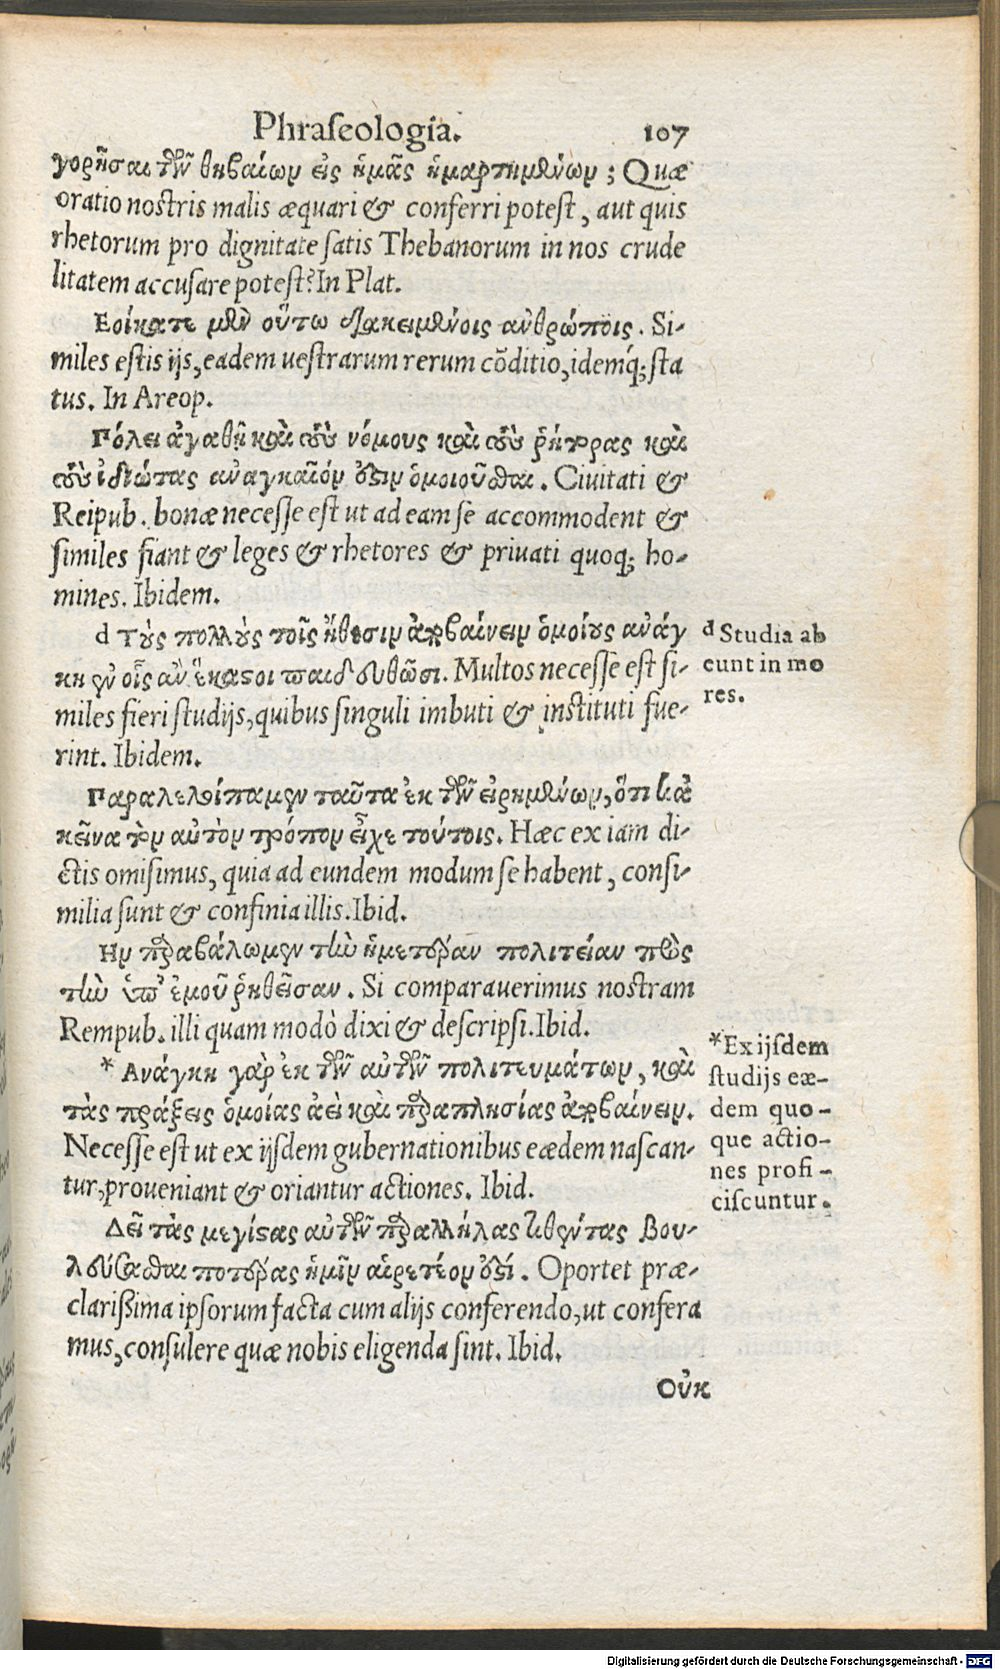 Phraſeologia. 107
γορῆσαι τῶν θηβαίων εἰς ἡμᾶς ἡμαρτημένων; Quæ
oratio nostris malis æquari & conferri potest, aut quis
rhetorum pro dignitate ſatis Thebanorum in nos crude
litatem accuſare potest? In Plat.
Εοίκατε μὲν οὕτω διακειμένοις ἀνθρώποις. Si-
miles estis ijs, eadem uestrarum rerum cõditio, idemq́; sta
tus. In Areop.
Πόλει ἀγαθῇ καὶ τοὺς νόμους καὶ τοὺς ῥήτορας καὶ
τοὺς ἰδιώτας ἀναγκαῖόν ὅστιν ὁμοιοῦσθαι. Ciuitati &
Reipub. bonæ neceſſe est ut ad eam ſe accommodent &
ſimiles fiant & leges & rhetores & priuati quoq; ho-
mines. Ibidem.
d Τοὺς πολλοὺς τοῖς ἤθεσιν ἀποβαίνειν ὁμοίους ἀνάγ
κη ἐν οἷς ἂν ἕκαστοι παιδευθῶσι. Multos neceſſe est ſi-
miles fieri studijs, quibus ſinguli imbuti & instituti fue-
rint. Ibidem.
d Studia ab
eunt in mo
res.
Παραλελοίπαμεν ταῦτα ἐκ τῶν εἰρημένων, ὅτι κἀ
κεῖνα τὸν αὐτὸν τρόπον εἶχε τούτοις. Hæc ex iam di-
ctis omiſimus, quia ad eundem modum ſe habent, conſi-
milia ſunt & confinia illis. Ibid.
Ην παραβάλωμεν τὴν ἡμετέραν πολιτείαν πρὸς
τὴν ὑπ' ἐμοῦ ῥηθεῖσαν. Si comparauerimus nostram
Rempub. illi quam modò dixi & deſcripſi. Ibid.
* Ανάγκη γὰρ ἐκ τῶν αὐτῶν πολιτευμάτων, καὶ
τὰς πράξεις ὁμοίας ἀεὶ καὶ παραπλησίας ἀποβαίνειν.
Neceſſe est ut ex ijſdem gubernationibus eædem naſcan-
tur, proueniant & oriantur actiones. Ibid.
*Ex ijſdem
ſtudijs eæ-
dem quo-
que actio-
nes profi-
ciſcuntur.
Δεῖ τὰς μεγίστας αὐτῶν παραλλήλας θέντας βου-
λεύσασθαι ποτέρας ἡμῖν αἱρετέον ἐστί. Oportet præ-
clarißima ipſorum facta cum alijs conferendo, ut confera
mus, conſulere quæ nobis eligenda ſint. Ibid.
Οὐκ
Digitalisierung gefördert durch die Deutsche Forschungsgemeinschaft - DFG